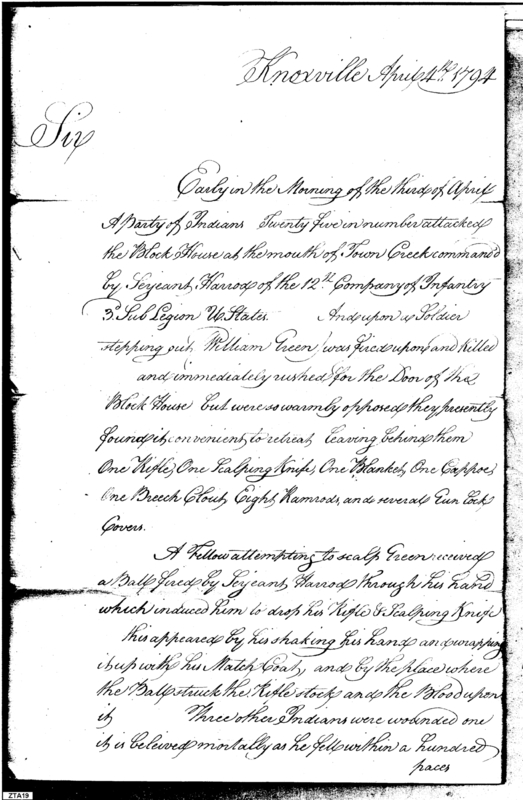 Knoxville April 4th. 1794
Sir
Early in the Morning of the third of April
A Party of Indians Twenty five in number attacked
the Block House at the mouth of Town Creek command'd
by Serjeant Harrod of the 12th Company of Infantry
3d. Sub Legion U. States. And upon a Soldier
stepping out William Green was fired upon and Killed
and immediately rushed for the Door of the
Block House but were so warmly opposed they presently
found it convenient to retreat leaving behind them
One Rifle, One Scalping Knife, One Blanket, One Cappoe,
One Breech Clout, Eight Ramrods, and several Gun Lock
Covers.
A Fellow attempting to scalp Green received
a Ball fired by Serjeant Harrod through his hand
which induced him to drop his Rifle & Scalping Knife
this appeared by his shaking his hand and wrapping
it up with his Match Coat, and by the place where
the Ball struck the Rifle stock and the Blood upon
it Three other Indians were wounded one
it is beleived mortally as he fell within a hundred
paces
ZTA19